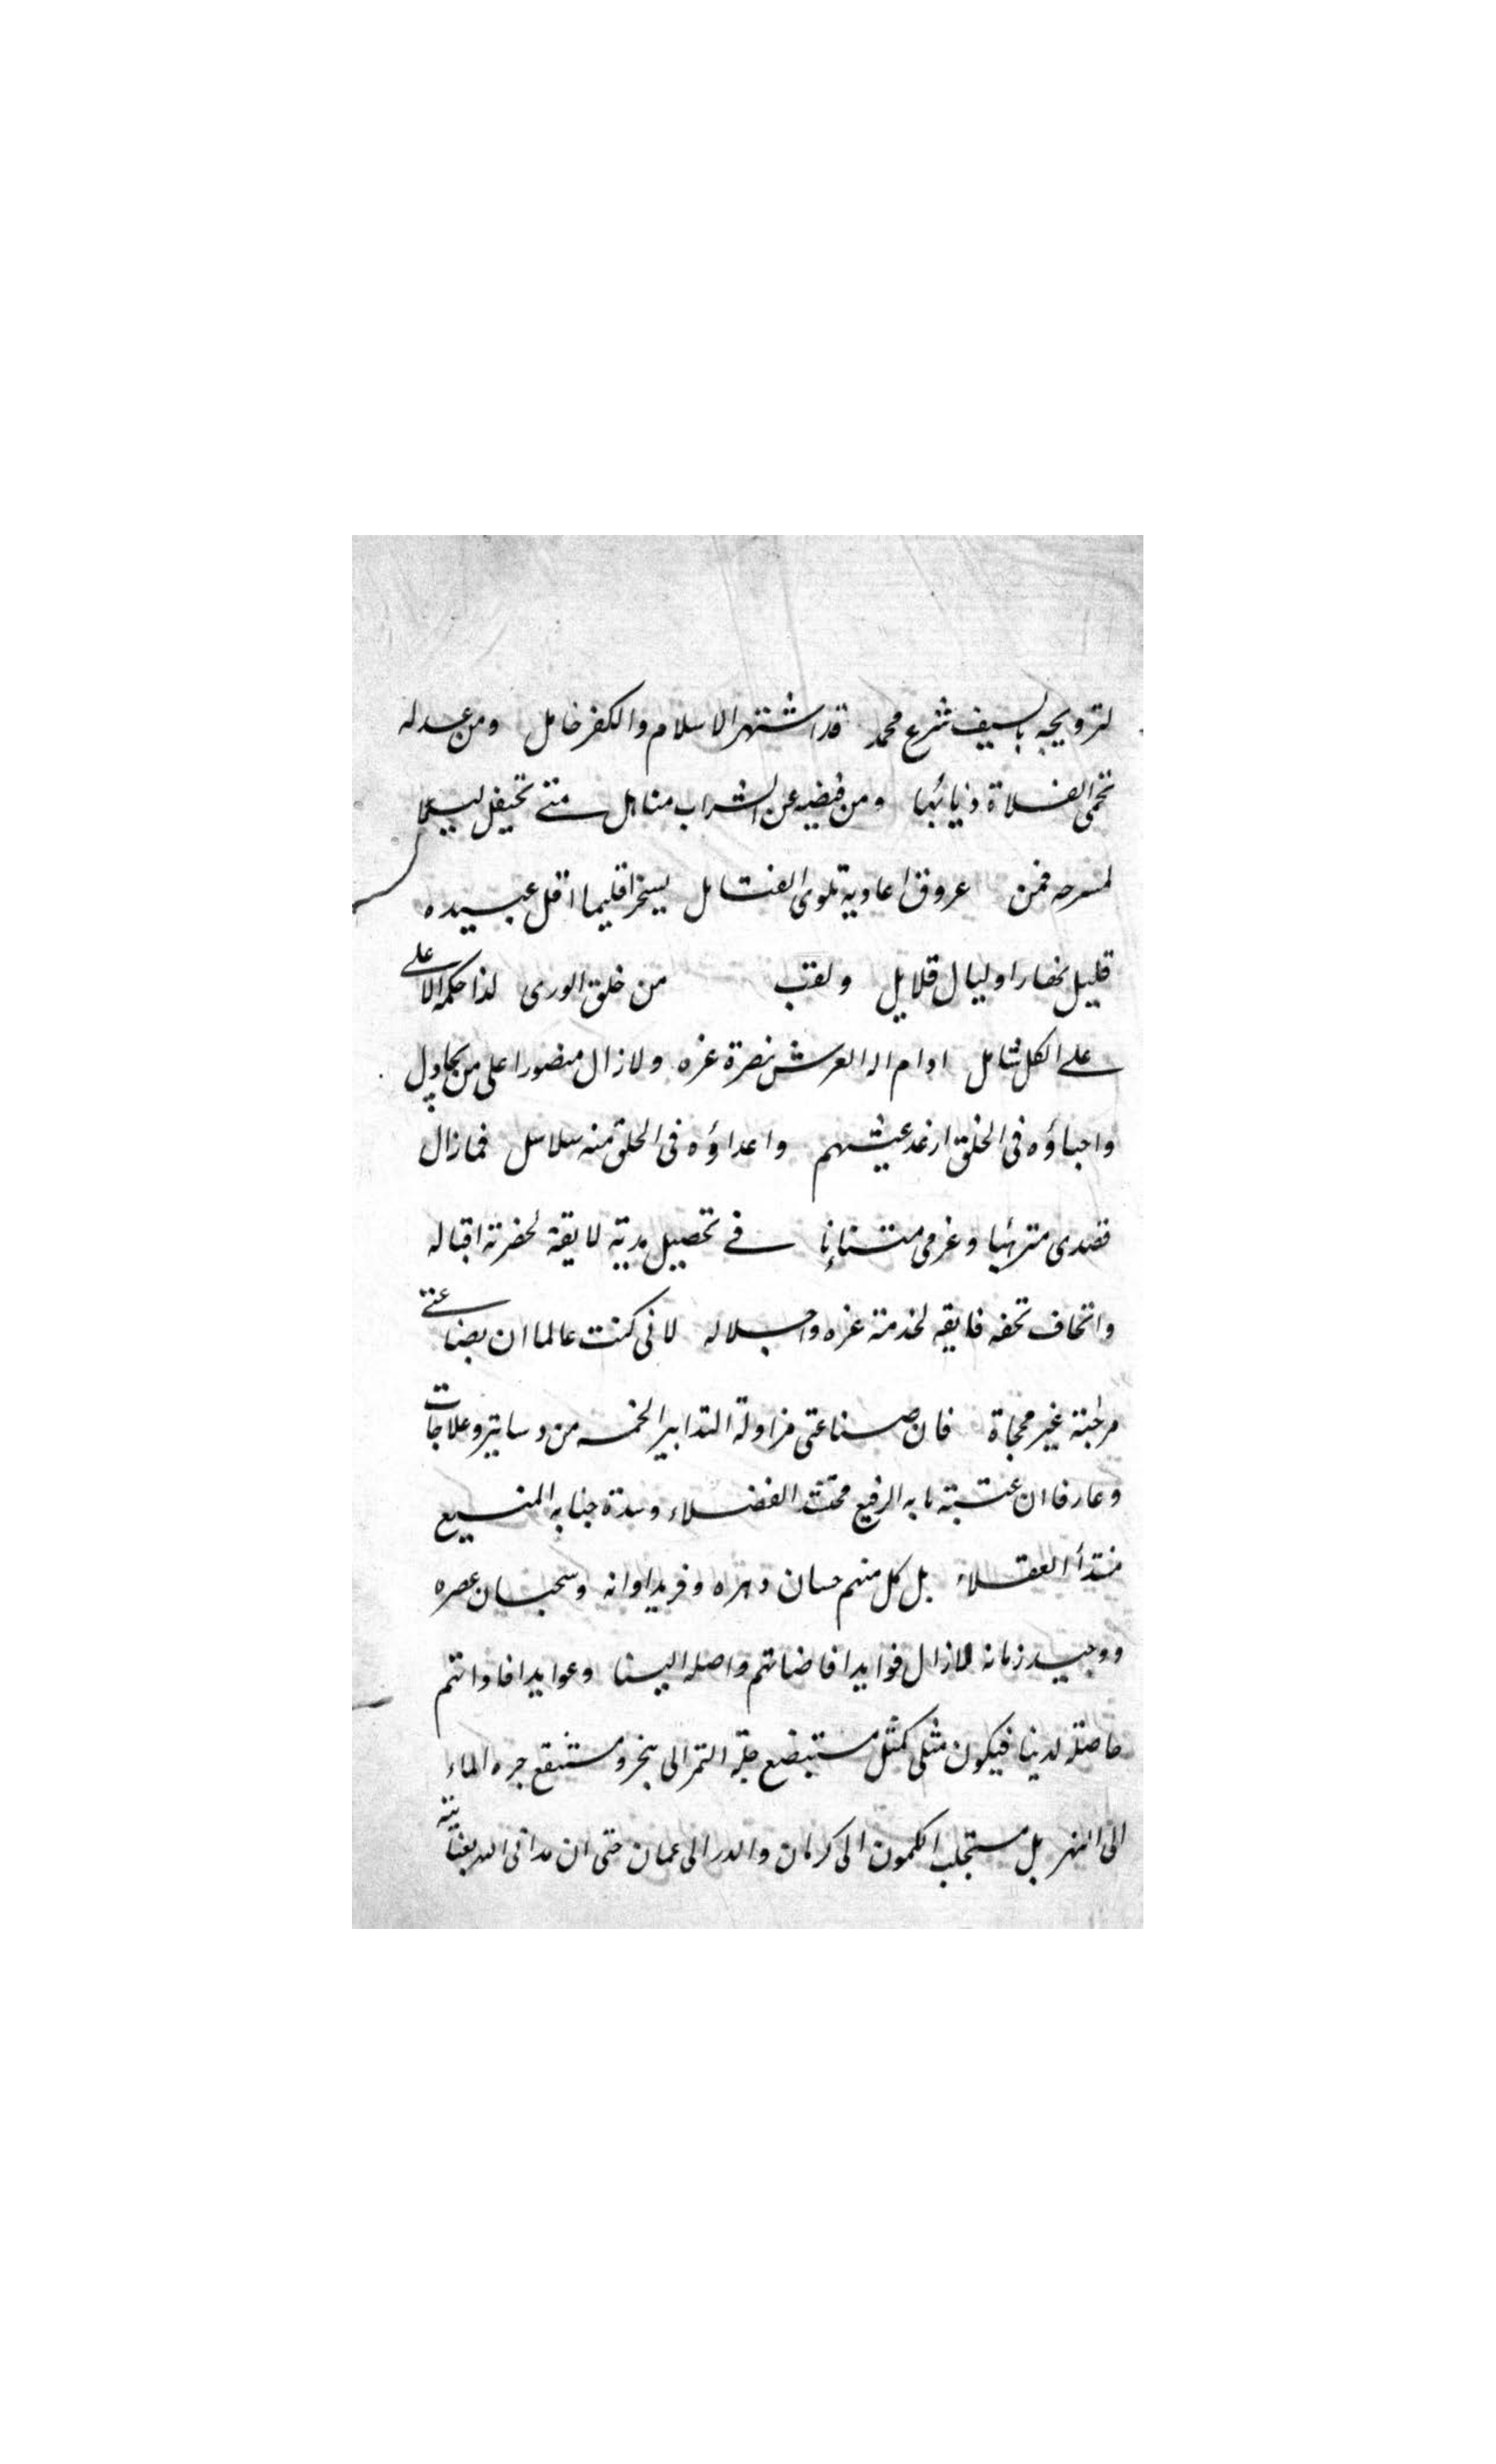 لترويجه بالسيف شرع محمد قد اشتهر الاسلام والكفر خامل ومن عدله
تحمى الفلاة ذيابُها ومن فيضه عن الشراب مناهل متى تحيفل ليلا
لمسرحه فمن عروق اعاديه تلوى الفتايل يسخر اقليما اقل عبيده
قليل نهار او ليال قلايل ولقب من خلق الورى لذا حكمه الاعلى
على الكل شامل ادام اله العرش نصرة عزه ولا زال منصورا على من يجادل
واحباؤه فى الخلق ارغد عيشهم واعداؤه فى الحلق منه سلاسل فما زال
قصدى مترئبا وعزمى متنائيا فى تحصيل هدية لايقة لحضرة اقباله
واتحاف تحفه فايقه لخدمة عزه واجلاله لانى كنت عالما ان بضاعتى
مرجئة غير مجاة فان صناعتى مزاولة التدابير الخمسه من دساتير وعلاجات
وعارفا ان عتبة بابه الرفيع محتد الفضلاء وسدة جنابه المنيع
منتدأ العقلاء بل كل منهم حسان دهره وفريد اوانه وسحبان عصره
ووحيد زمانه لازال فوايد افاضاتهم واصله الينا وعوايد افاداتهم
حاصلة لدينا فيكون مثلى كمثل مستبضع جلة التمر الى هجر ومستنقع جره الماء
الى النهر بل مستجلب الكمون الى كرمان والدر الى عمان حتى ان هدانى الله بعنايته